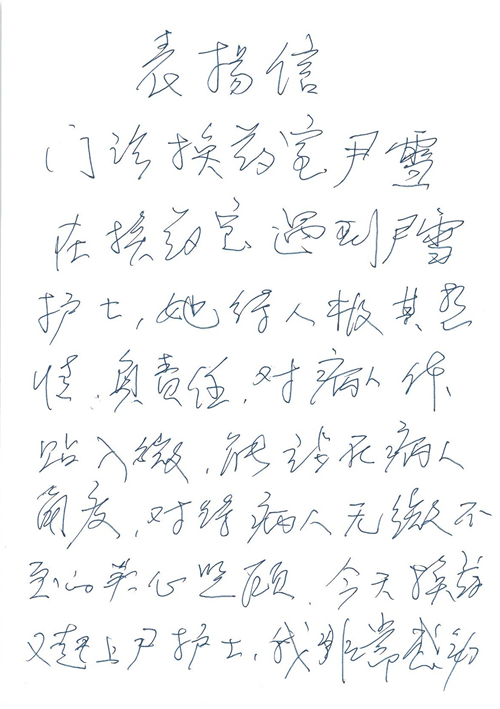 表扬信
门诊换药室尹雪
在换药室遇到尹雪
护士,她待人极其热
情、负责任,对病人体
贴入微,能站在病人
角度,对待病人无微不
至的关心照顾,今天换药
又赶上尹护士,我非常感动